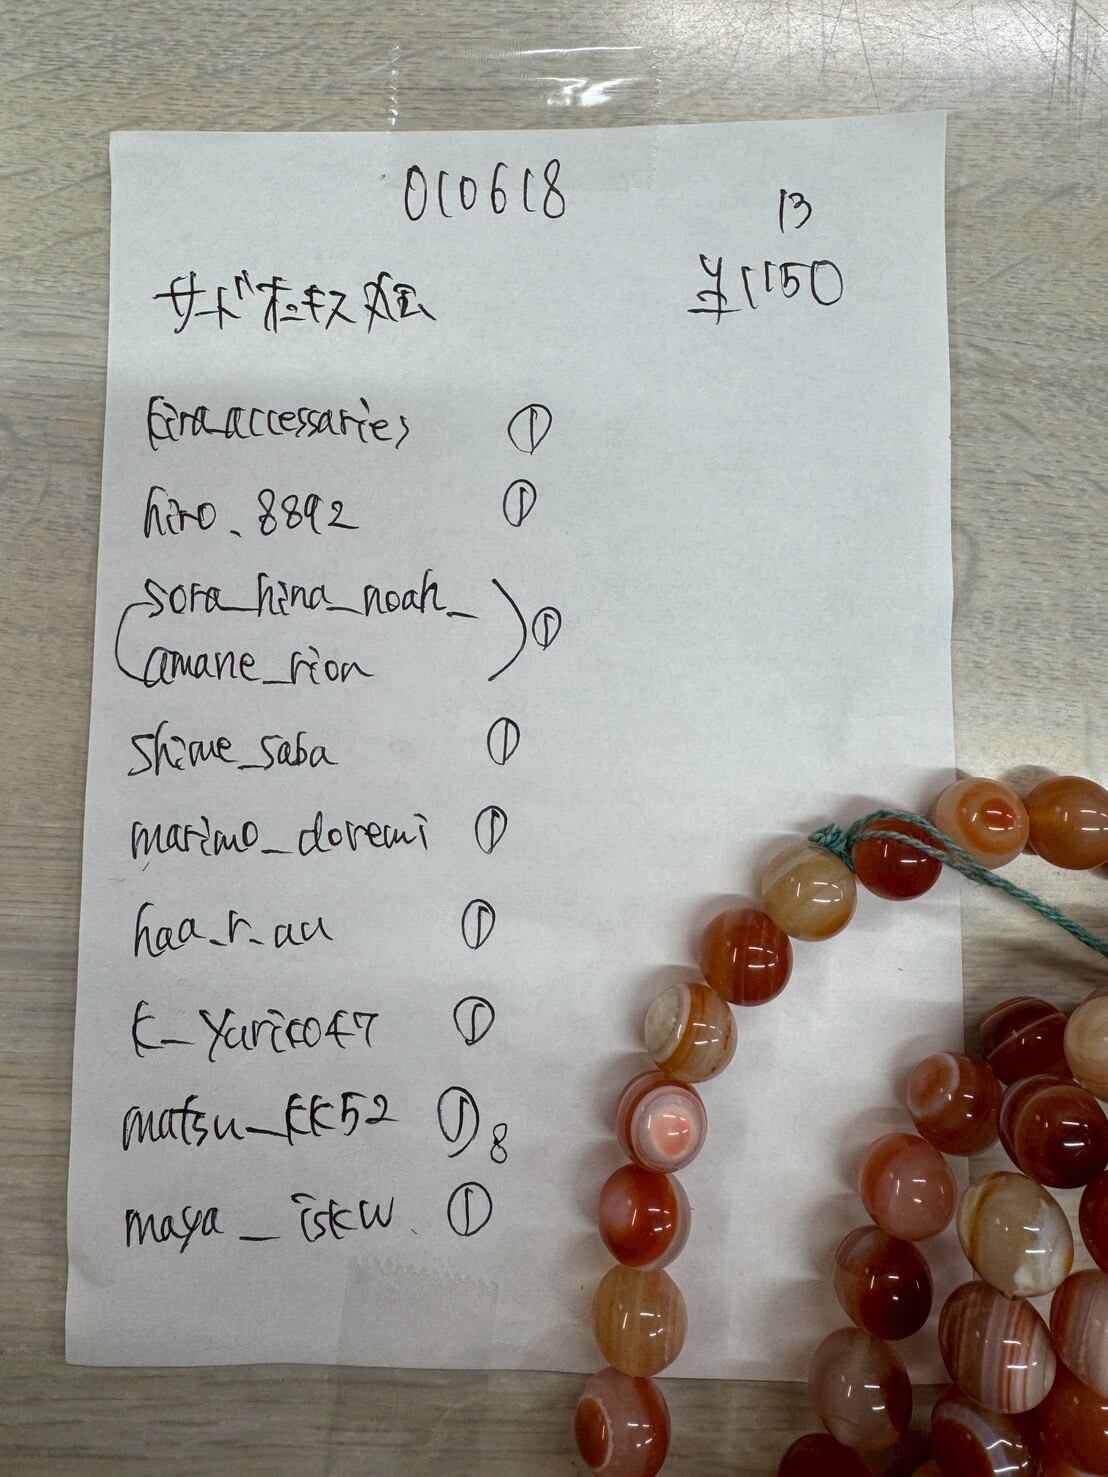 010618
13
サードオニキス 丸
¥1150
kira_accessaries ①
hiro.8892 ①
(sora_hina_noah_
amane_rion) ①
shime_saba ①
marimo_doremi ①
haa_r_au ①
k_yuriko47 ①
matsu_kk52 ① 8
maya_iskw ①